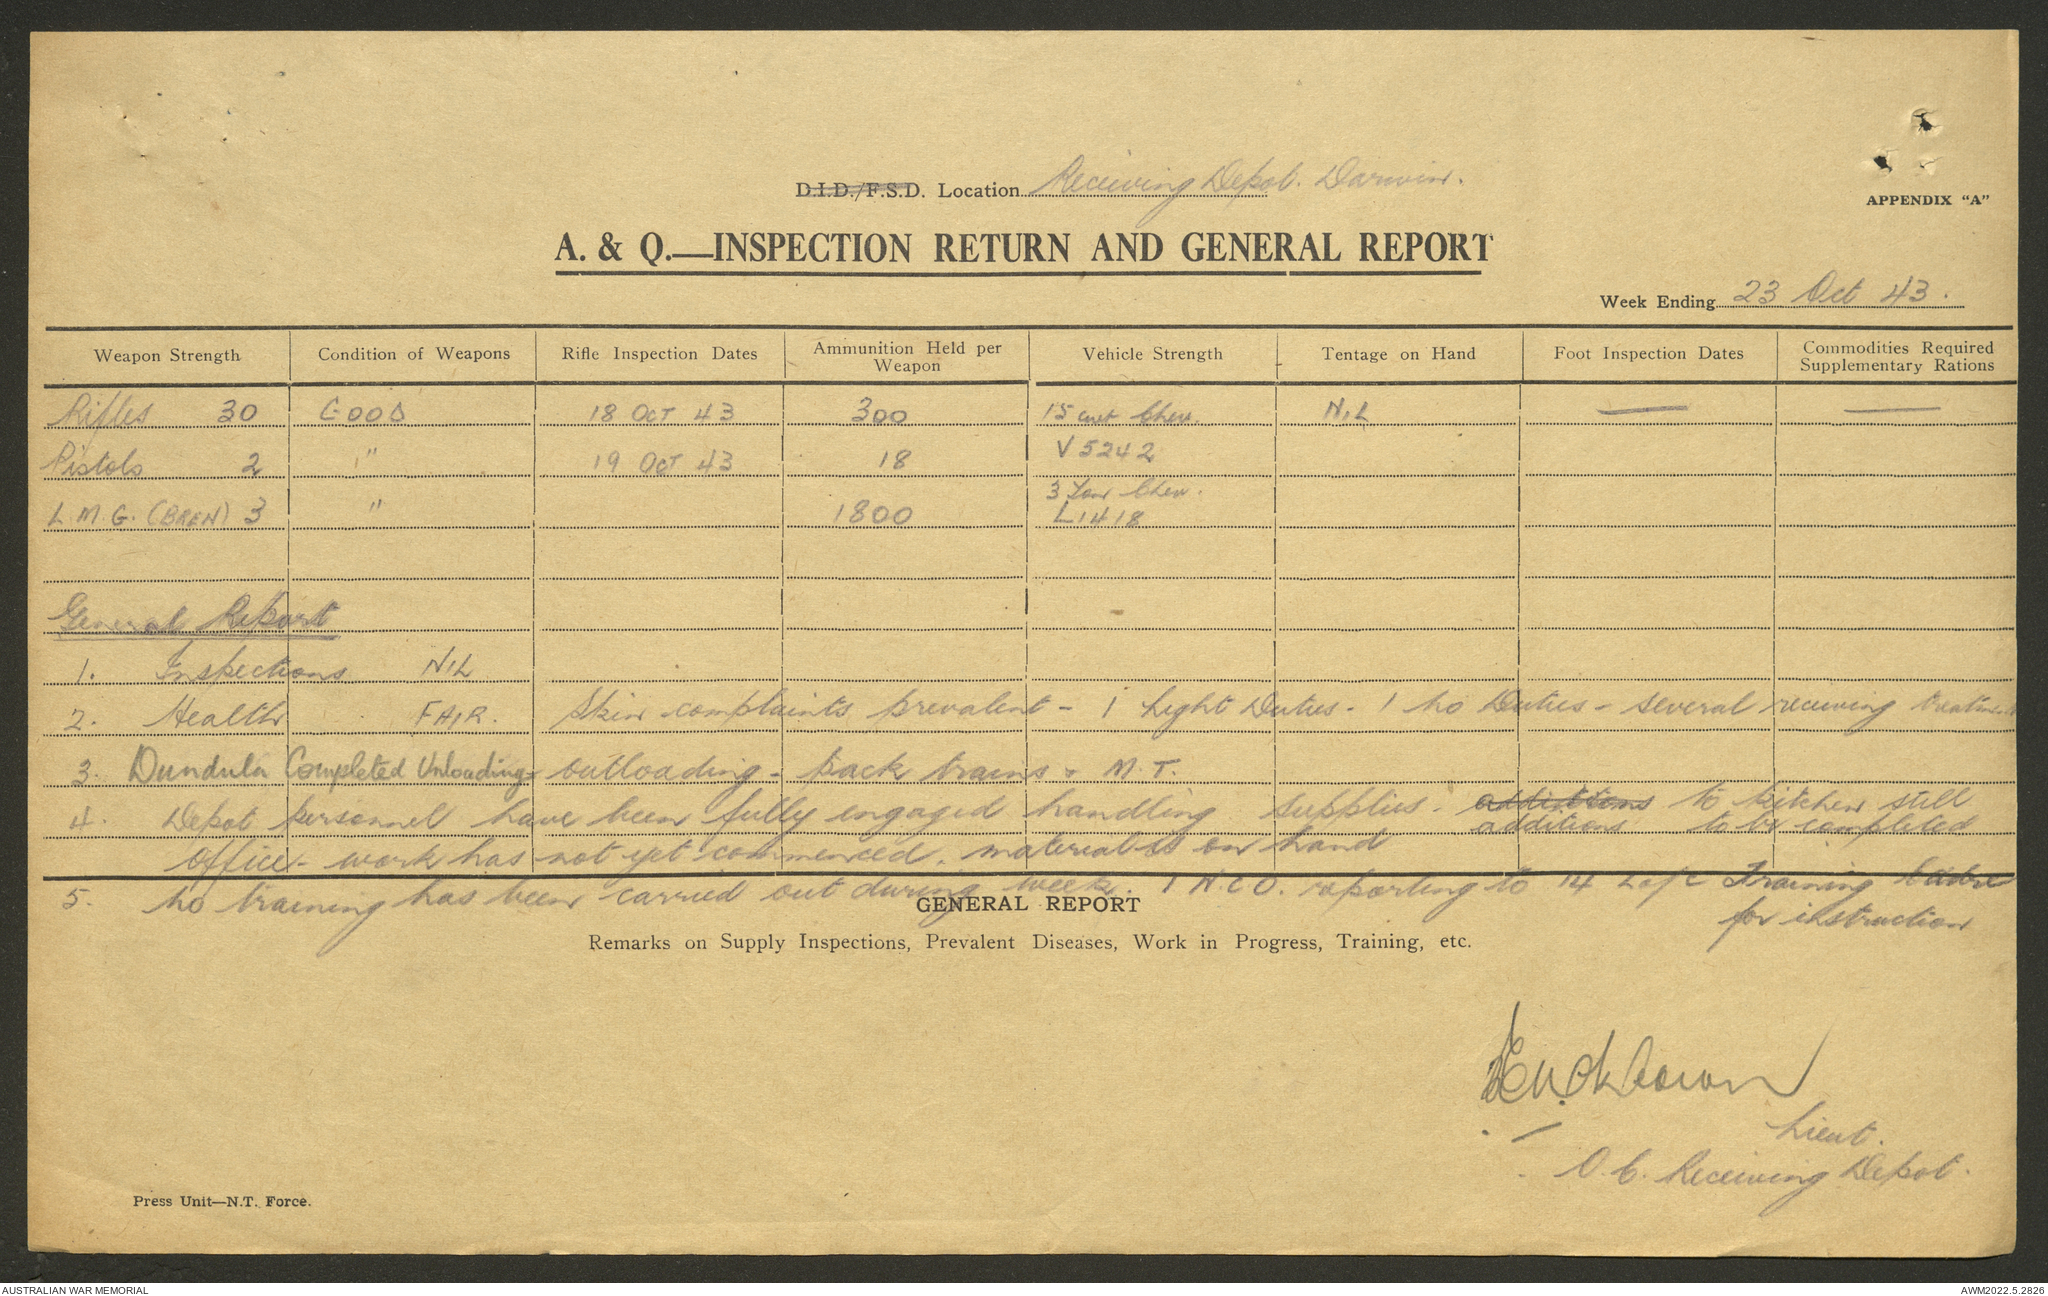 D.I.D./F.S.D. Location Receiving Depot. Darwin.
APPENDIX "A"
A. & Q.—INSPECTION RETURN AND GENERAL REPORT
Week Ending 23 Oct 43.
Weapon Strength Condition of Weapons Rifle Inspection Dates Ammunition Held per Weapon Vehicle Strength Tentage on Hand Foot Inspection Dates Commodities Required Supplementary Rations
Rifles 30 GOOD 18 OCT 43 300 15 cwt Chev. NIL — —
Pistols 2 " 19 OCT 43 18 V5242
L.M.G. (BREN) 3 " 1800 3 Ton Chev.
L1418
General Report
1. Inspections NIL
2. Health FAIR. Skin complaints prevalent - 1 Light Duties - 1 No Duties - several receiving
3. Dundula Completed Unloading & outloading - pack trains & M.T.
4. Depot personnel have been fully engaged handling supplies. additions to kitchen still
additions to be completed
Office - work has not yet commenced. material is on hand
5. No training has been carried out during week. 1 N.C.O. reporting to 14 Training Cadre
for instruction
GENERAL REPORT
Remarks on Supply Inspections, Prevalent Diseases, Work in Progress, Training, etc.
Lieut.
O.C. Receiving Depot.
Press Unit—N.T. Force.
AUSTRALIAN WAR MEMORIAL
AWM2022.5.2826